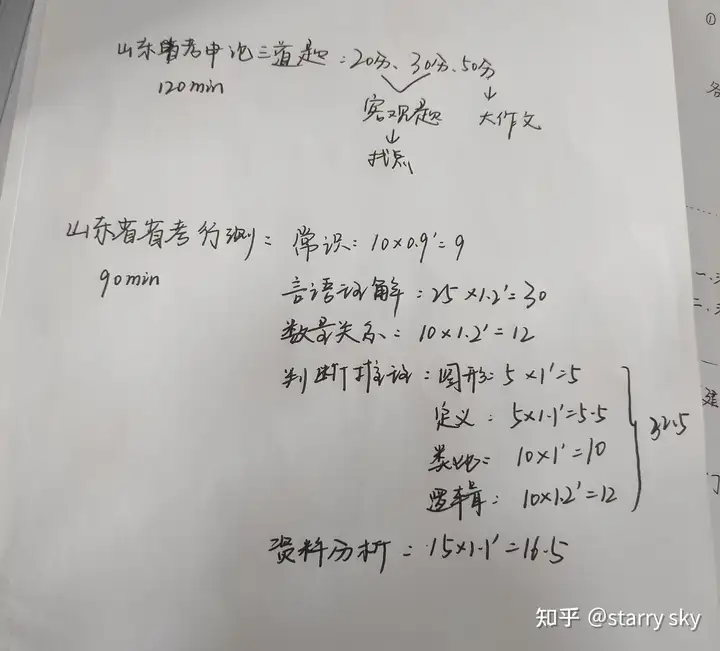 山东省考申论三道题：20分、30分、50分
120min
客观题
大作文
找点
山东省省考行测：常识：10×0.9'=9
90min
言语理解：25×1.2'=30
数量关系：10×1.2'=12
判断推理：图形：5×1'=5
定义：5×1.1'=5.5
类比：10×1'=10
逻辑：10×1.2'=12
32.5
资料分析：15×1.1'=16.5
①
各
一、
二、
建
知乎 @starry sky